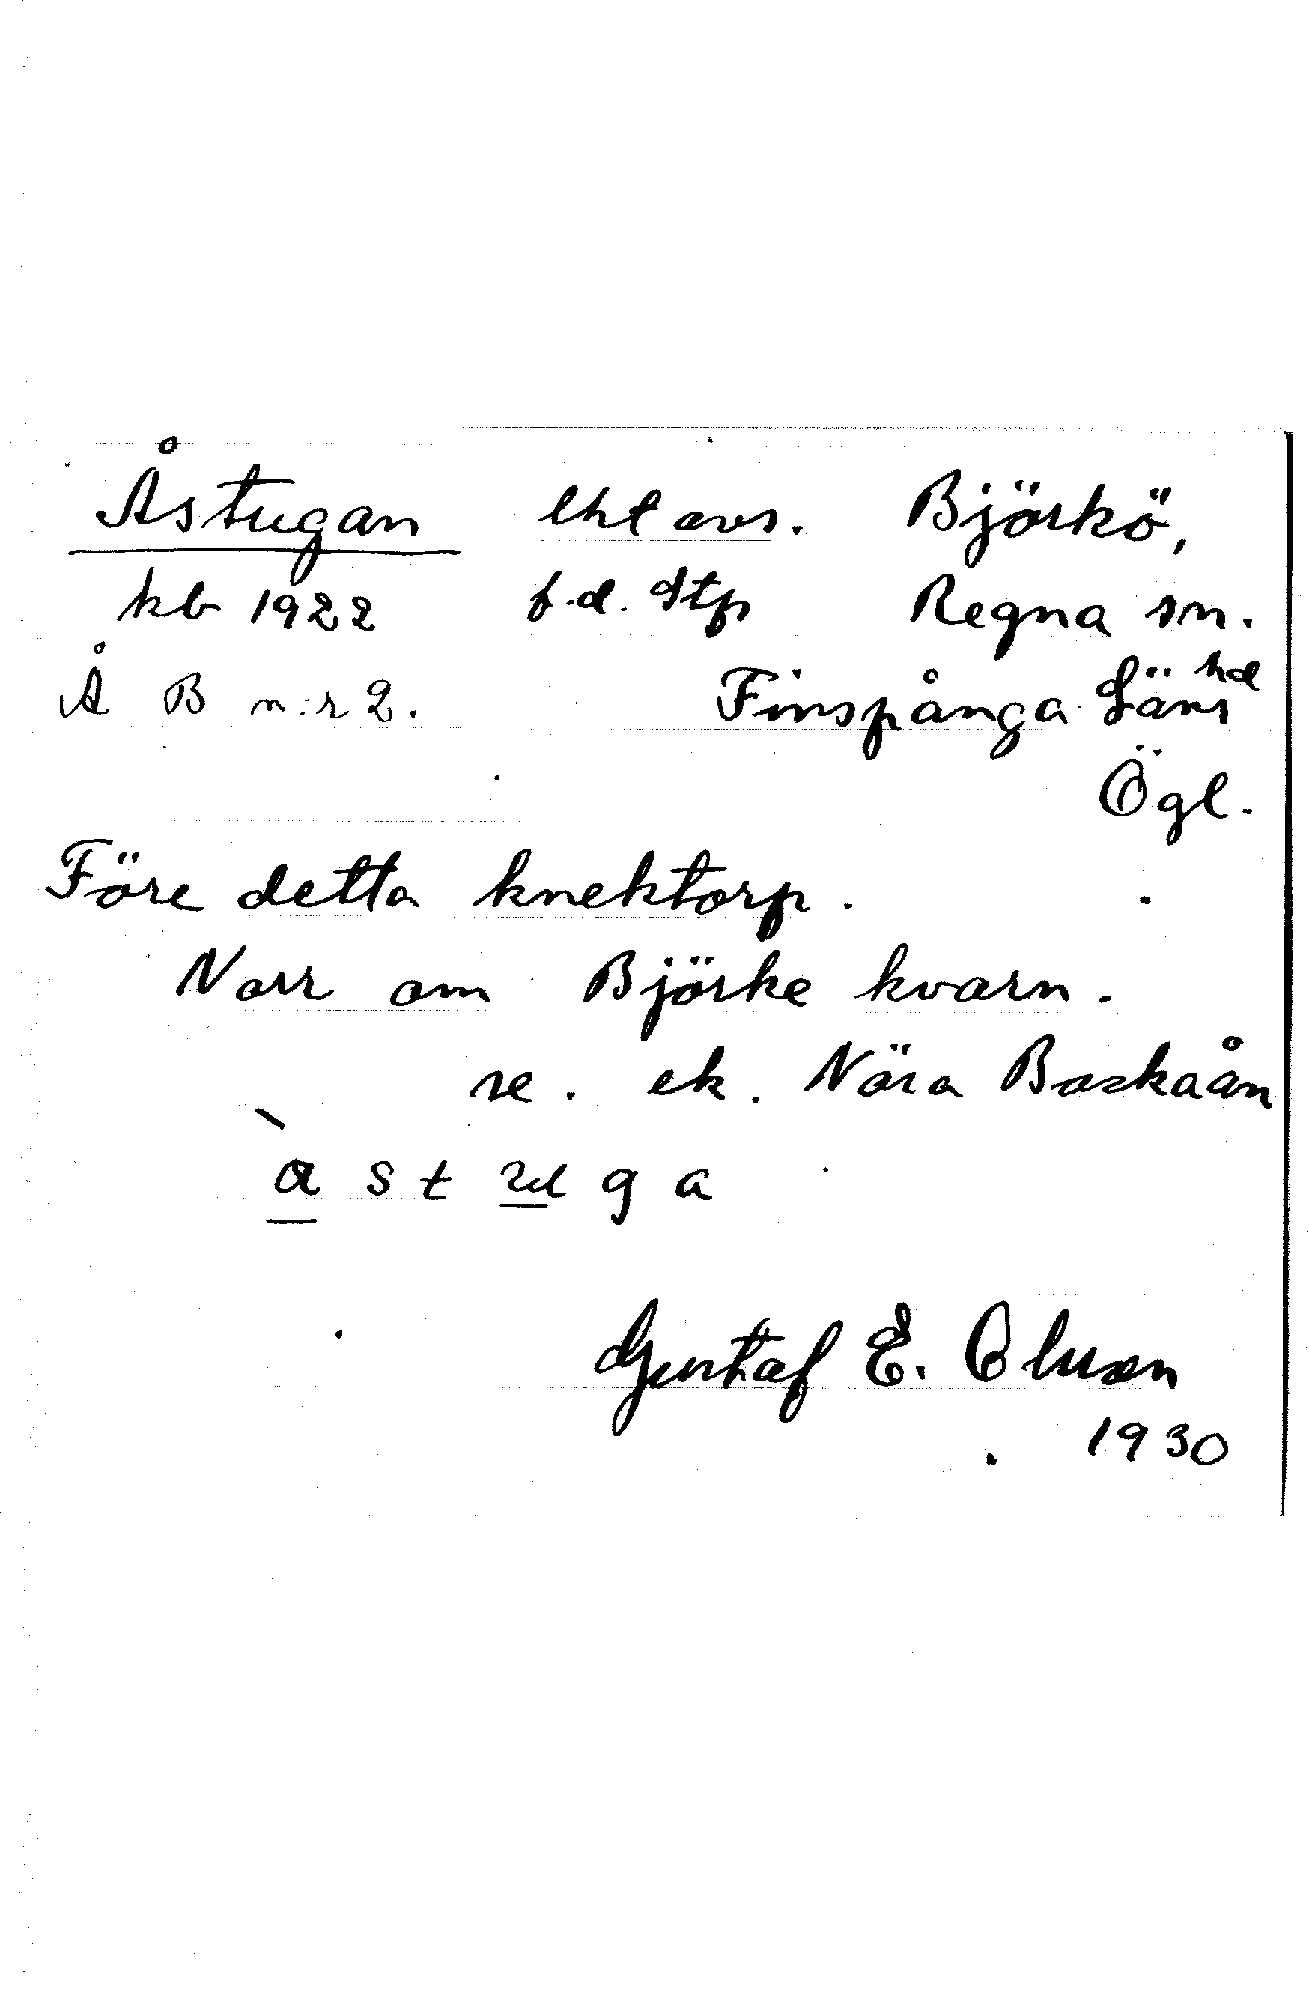 Åstugan lht avs. Björkö,
kb 1922 f.d. stp Regna sn.
Å B n:r 2. Finspånga Läns hd
Ögl.
Före detta knektorp.
Norr om Björke kvarn.
se. ek. Nära Baskaån
à s t u g a
Gustaf E. Olsson
1930